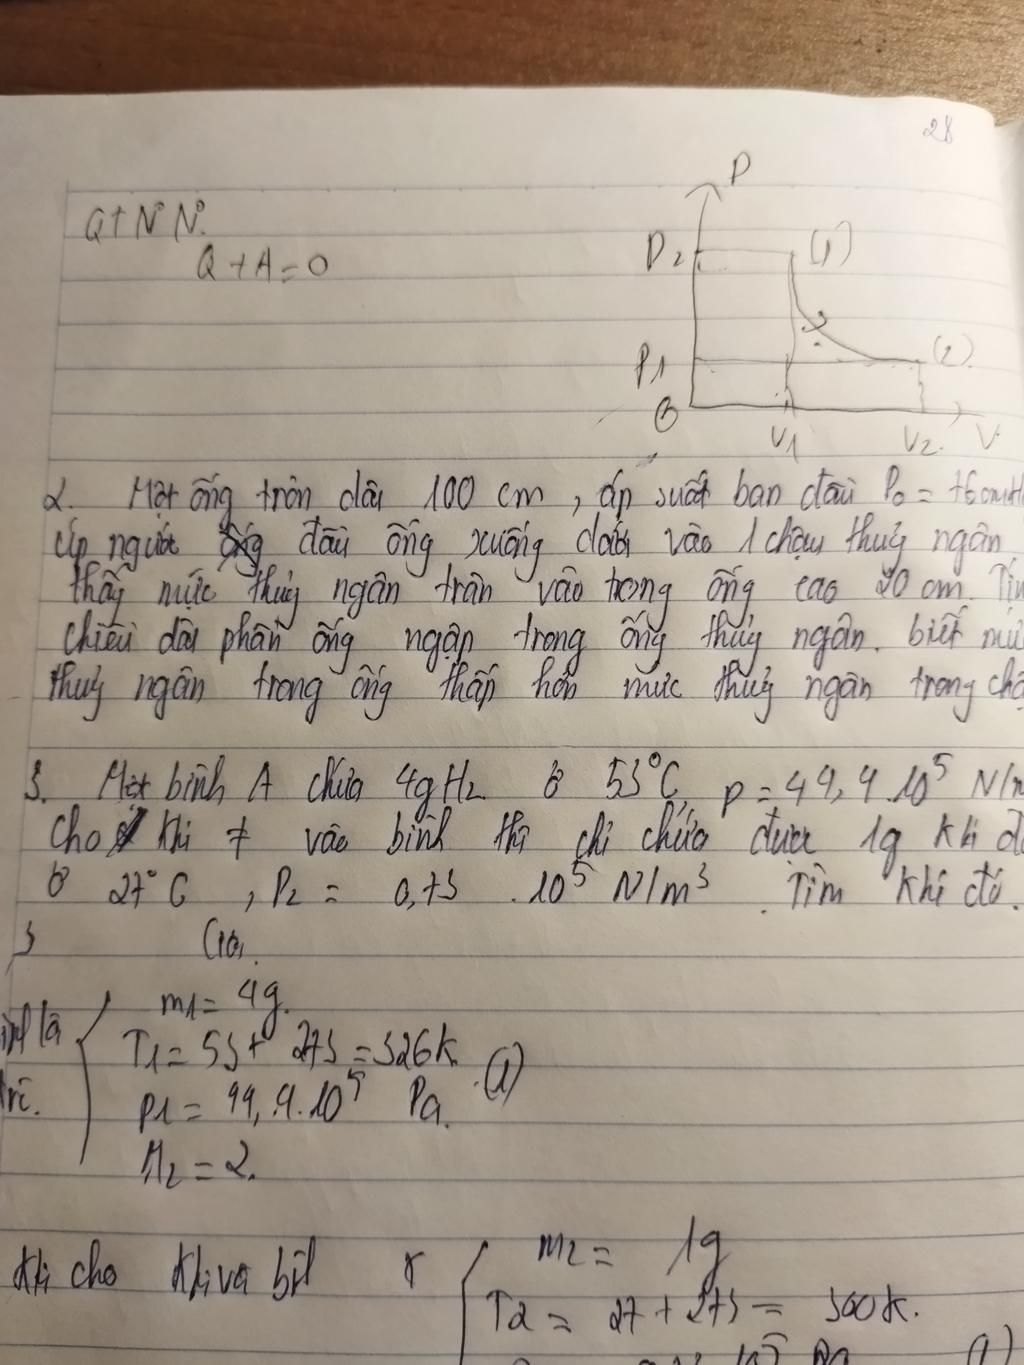 28
Q+N°N°.
Q+A=0
P
P2
(1)
P1
(2)
O
V1
V2
V
2. Một ống tròn dài 100 cm, áp suất ban đầu P0 = 76cmH
úp ngược đầu ống xuống dưới vào 1 chậu thuỷ ngân
thấy mức thuỷ ngân tràn vào trong ống cao 20 cm. Tìm
chiều dài phần ống ngập trong ống thuỷ ngân. biết mứ
thuỷ ngân trong ống thấp hơn mưc thuỷ ngân trong chậ
3. Một bình A chứa 4g H2 ở 53°C, p = 44,4.10⁵ N/m
Cho khí ≠ vào bình thì chỉ chứa được 1g khí đ
ở 27°C, P2 = 0,75 .10⁵ N/m³. Tìm khí đó.
3
m1= 4g.
T1= 53+ 273 =326k
p1= 44,4.10⁵ Pa. (1)
M2 = 2.
Khi cho
m2= 1g
T2 = 27+273 = 300k.